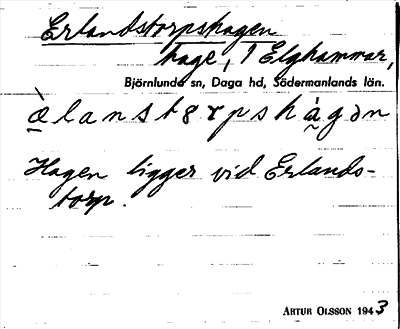 Erlandstorpshagen
hage, 1 Elghammar,
Björnlunda sn, Daga hd, Södermanlands län.
Hagen ligger vid Erlands-
torp.
ARTUR OLSSON 1943